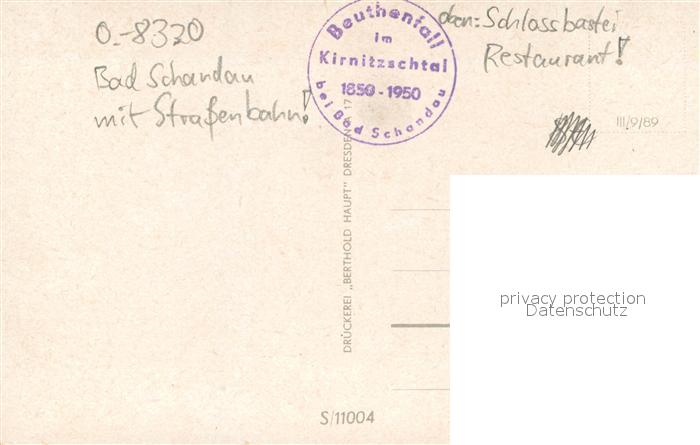 O.-8320
Bad Schandau
mit Straßenbahn!
Beuthenfall
im
Kirnitzschtal
1850-1950
bei Bad Schandau
oben: Schlossbastei
Restaurant!
III/9/89
DRUCKEREI „BERTHOLD HAUPT" DRESDEN A 17
privacy protection
Datenschutz
S/11004